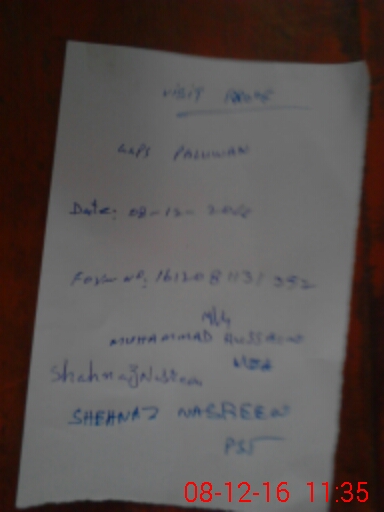 VISIT PROOF
GGPS PALHWAN
Date: 08-12-2016
Form no: 161208 1131 352
MUHAMMAD HUSSAIN
Shahnaz Nasreen
SHEHNAZ NASREEN
PST
08-12-16 11:35